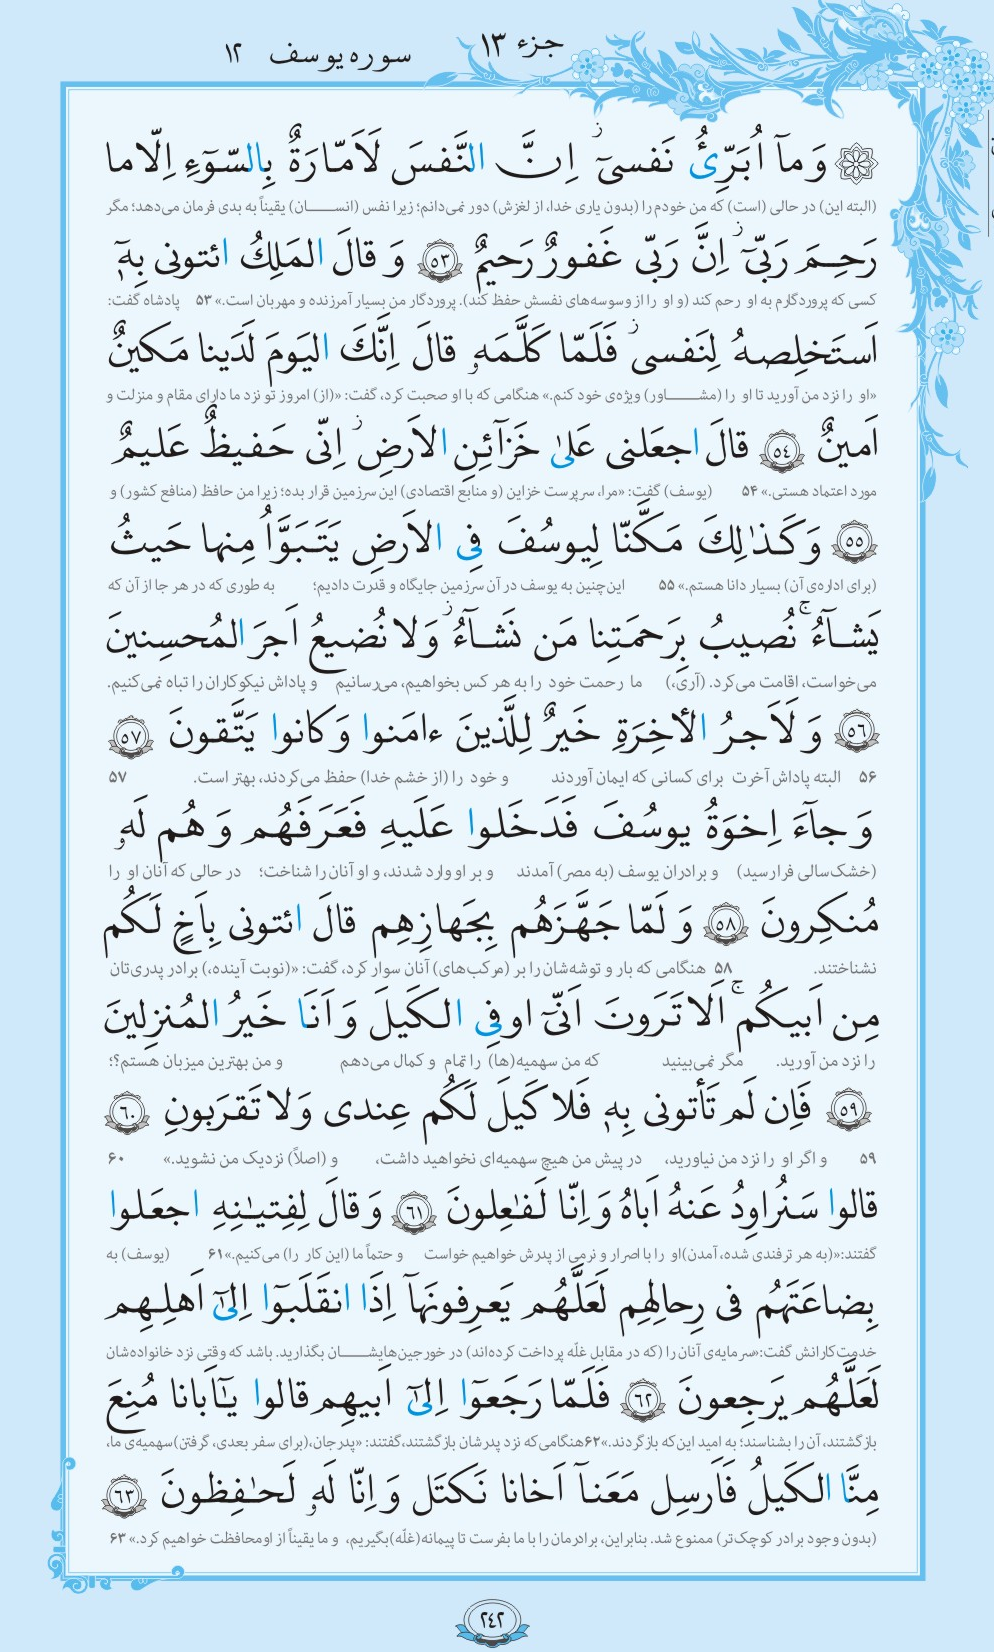 جزء ۱۳
سوره یوسف ۱۲
۞ وَ مآ اُبَرِّئُ نَفسیٓ ۚز اِنَّ النَّفسَ لَاَمّارَةٌ بِالسّوٓءِ اِلّا ما
(البته این) در حالی (است) که من خودم را (بدون یاری خدا، از لغزش) دور نمی‌دانم؛ زیرا نفس (انســـان) یقیناً به بدی فرمان می‌دهد؛ مگر
رَحِمَ رَبّیٓ ز اِنَّ رَبّی غَفورٌ رَحیمٌ ﴿۵۳﴾ وَ قالَ المَلِکُ ائتونی بِهٖٓ
کسی که پروردگارم به او رحم کند (و او را از وسوسه‌های نفسش حفظ کند). پروردگار من بسیار آمرزنده و مهربان است.» ۵۳ پادشاه گفت:
اَستَخلِصهُ لِنَفسی ز فَلَمّا کَلَّمَهٗ قالَ اِنَّکَ الیَومَ لَدَینا مَکینٌ
«او را نزد من آورید تا او را (مشـــاور) ویژه‌ی خود کنم.» هنگامی که با او صحبت کرد، گفت: «(از) امروز تو نزد ما دارای مقام و منزلت و
اَمینٌ ﴿۵۴﴾ قالَ اجعَلنی عَلیٰ خَزآئِنِ الاَرضِ ز اِنّی حَفیظٌ عَلیمٌ
مورد اعتماد هستی.» ۵۴ (یوسف) گفت: «مرا، سرپرست خزاین (و منابع اقتصادی) این سرزمین قرار بده؛ زیرا من حافظ (منافع کشور) و
﴿۵۵﴾ وَ کَذٰلِکَ مَکَّنّا لِیوسُفَ فِی الاَرضِ یَتَبَوَّاُ مِنها حَیثُ
(برای اداره‌ی آن) بسیار دانا هستم.» ۵۵ این‌چنین به یوسف در آن سرزمین جایگاه و قدرت دادیم؛ به طوری که در هر جا از آن که
یَشآءُ ج نُصیبُ بِرَحمَتِنا مَن نَشآءُ ز وَ لا نُضیعُ اَجرَ المُحسِنینَ
می‌خواست، اقامت می‌کرد. (آری،) ما رحمت خود را به هر کس بخواهیم، می‌رسانیم و پاداش نیکوکاران را تباه نمی‌کنیم.
﴿۵۶﴾ وَ لَاَجرُ الأخِرَةِ خَیرٌ لِلَّذینَ ءامَنوا وَ کانوا یَتَّقونَ ﴿۵۷﴾
۵۶ البته پاداش آخرت برای کسانی که ایمان آوردند و خود را (از خشم خدا) حفظ می‌کردند، بهتر است. ۵۷
وَ جآءَ اِخوَةُ یوسُفَ فَدَخَلوا عَلَیهِ فَعَرَفَهُم وَ هُم لَهٗ
(خشک‌سالی فرا رسید) و برادران یوسف (به مصر) آمدند و بر او وارد شدند، و او آنان را شناخت؛ در حالی که آنان او را
مُنکِرونَ ﴿۵۸﴾ وَ لَمّا جَهَّزَهُم بِجَهازِهِم قالَ ائتونی بِاَخٍ لَکُم
نشناختند. ۵۸ هنگامی که بار و توشه‌شان را بر (مرکب‌های) آنان سوار کرد، گفت: «(نوبت آینده،) برادر پدری‌تان
مِن اَبیکُم ج اَلا تَرَونَ اَنّیٓ اوفِی الکَیلَ وَ اَنَا خَیرُ المُنزِلینَ
را نزد من آورید. مگر نمی‌بینید که من سهمیه(ها) را تمام و کمال می‌دهم و من بهترین میزبان هستم؟؛
﴿۵۹﴾ فَاِن لَم تَأتونی بِهٖ فَلا کَیلَ لَکُم عِندی وَ لا تَقرَبونِ ﴿۶۰﴾
۵۹ و اگر او را نزد من نیاورید، در پیش من هیچ سهمیه‌ای نخواهید داشت، و (اصلاً) نزدیک من نشوید.» ۶۰
قالوا سَنُراوِدُ عَنهُ اَباهُ وَ اِنّا لَفٰعِلونَ ﴿۶۱﴾ وَ قالَ لِفِتیٰنِهِ اجعَلوا
گفتند:«(به هر ترفندی شده، آمدن)او را با اصرار و نرمی از پدرش خواهیم خواست و حتماً ما (این کار را) می‌کنیم.»۶۱ (یوسف) به
بِضاعَتَهُم فی رِحالِهِم لَعَلَّهُم یَعرِفونَهآ اِذَا انقَلَبوٓا اِلیٰٓ اَهلِهِم
خدمت‌کارانش گفت:«سرمایه‌ی آنان را (که در مقابل غلّه پرداخت کرده‌اند) در خورجین‌هایشـــان بگذارید. باشد که وقتی نزد خانواده‌شان
لَعَلَّهُم یَرجِعونَ ﴿۶۲﴾ فَلَمّا رَجَعوٓا اِلیٰٓ اَبیهِم قالوا یٰٓاَبانا مُنِعَ
بازگشتند، آن را بشناسند؛ به امید این‌که بازگردند.»۶۲هنگامی‌که نزد پدرشان بازگشتند،گفتند: «پدرجان،(برای سفر بعدی، گرفتن)سهمیه‌ی ما،
مِنَّا الکَیلُ فَاَرسِل مَعَنآ اَخانا نَکتَل وَ اِنّا لَهٗ لَحٰفِظونَ ﴿۶۳﴾
(بدون وجود برادر کوچک‌تر) ممنوع شد. بنابراین، برادرمان را با ما بفرست تا پیمانه(غلّه)بگیریم، و ما یقیناً از او محافظت خواهیم کرد.» ۶۳
۲۴۲